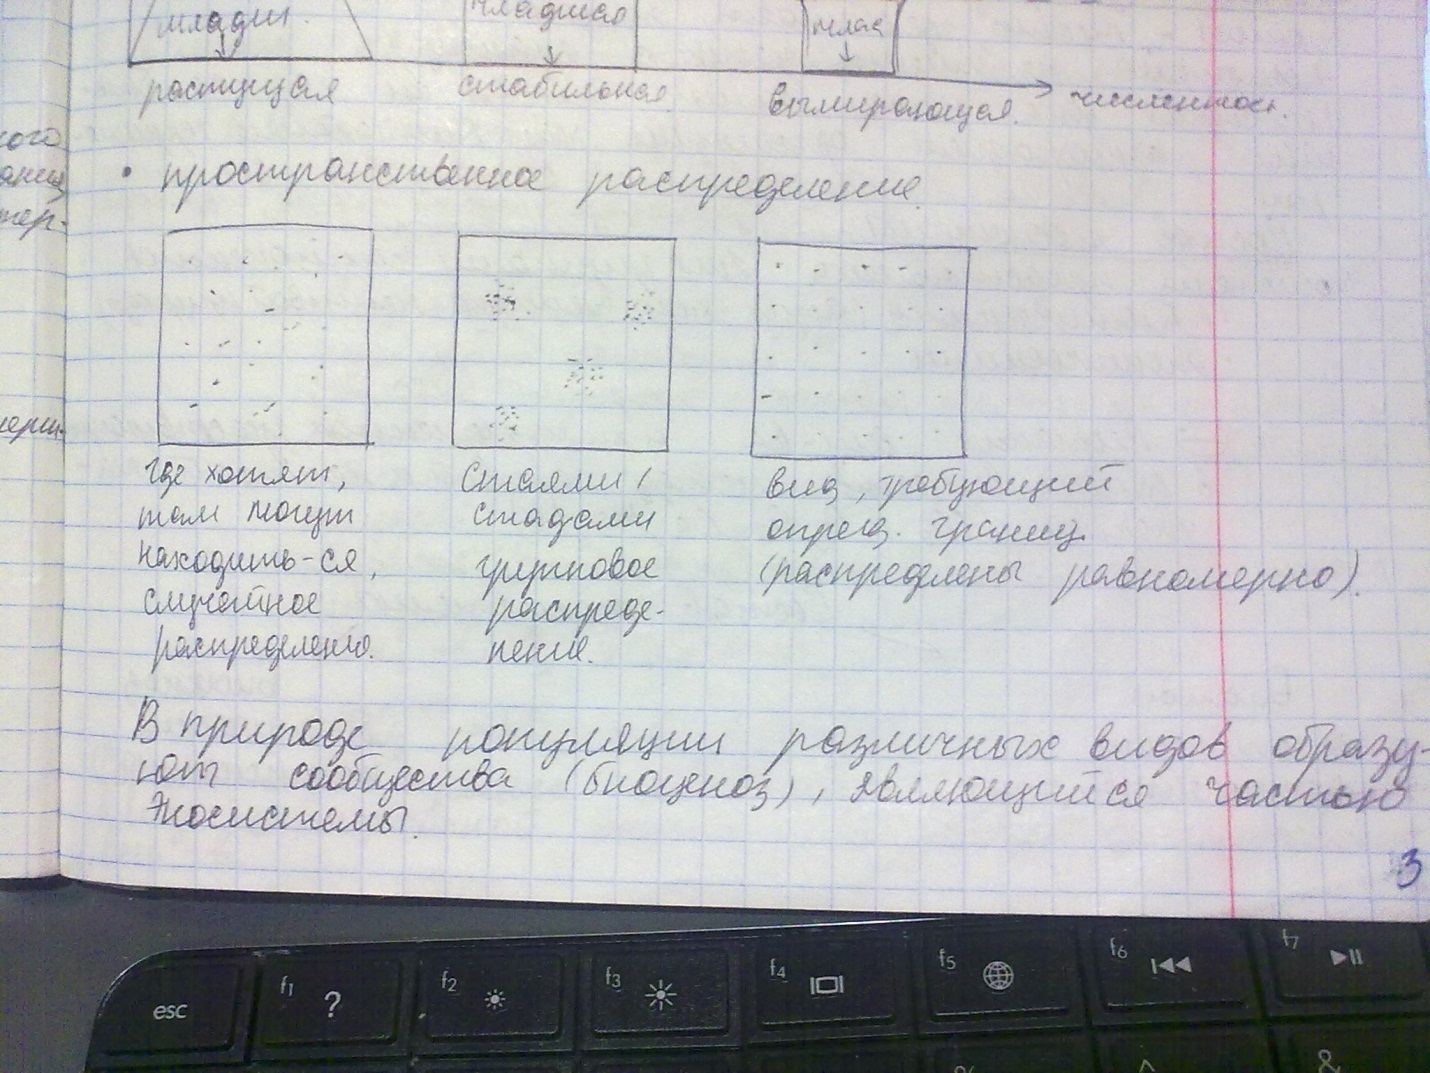 младш.
младшая
млад
растущая стабильная вымирающая. численность.
ого
аниц
тер-
• пространственное распределение.
где хотят,
там могут
находить-ся,
случайное
распределение.
стаями /
стадами
групповое
распреде-
ление.
вид, требующий
опред. границ.
(распределены равномерно).
В природе популяции различных видов образу-
ют сообщества (биоценоз), являющийся частью
экосистемы.
3
esc
f1 ?
f2
f3
f4
f5
f6
f7
%
^
&